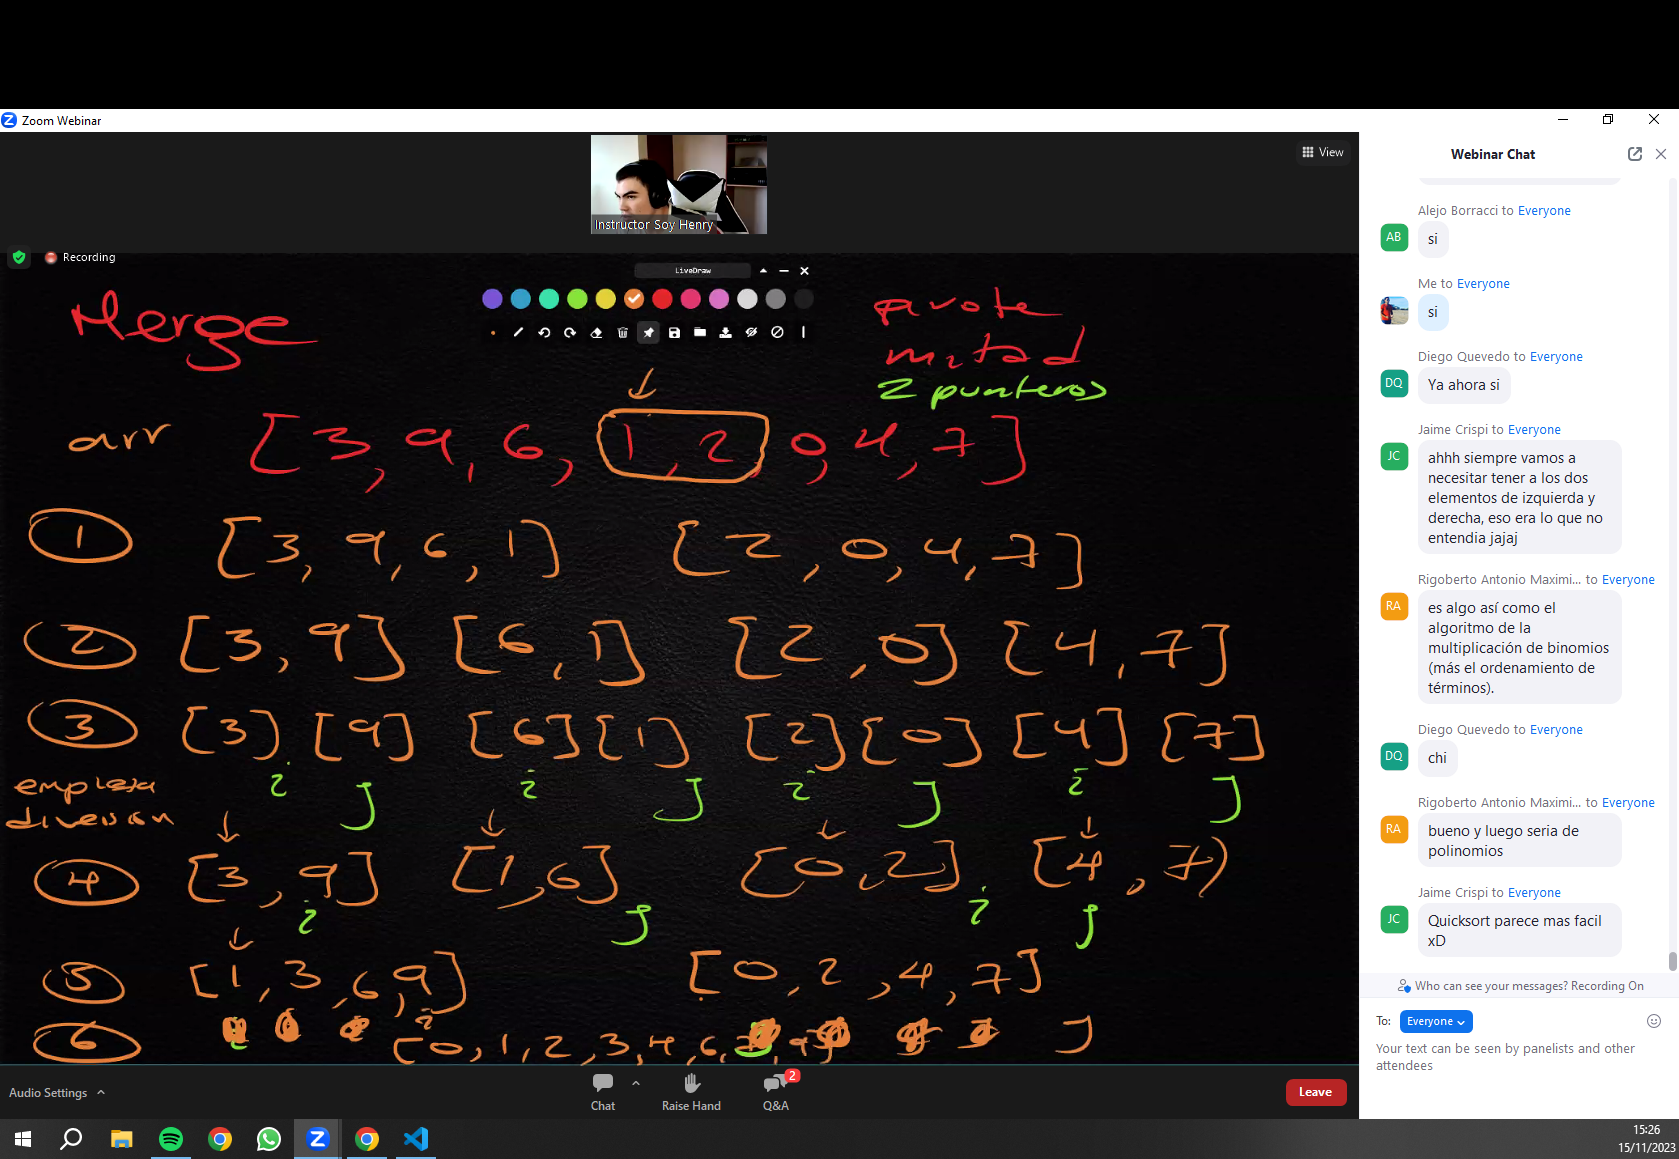 Zoom Webinar
View
Instructor Soy Henry
Recording
LiveDraw
Merge
pivote
mitad
2 punteros
arr [3, 9, 6, 1, 2, 0, 4, 7]
1 [3, 9, 6, 1] [2, 0, 4, 7]
2 [3, 9] [6, 1] [2, 0] [4, 7]
3 [3] [9] [6] [1] [2] [0] [4] [7]
empieza
diversion
i j i j i j i j
4 [3, 9] [1, 6] [0, 2] [4, 7]
i j i j
5 [1, 3, 6, 9] [0, 2, 4, 7]
i j
6 [0, 1, 2, 3, 4, 6,
Audio Settings
Chat
Raise Hand
Q&A
2
Leave
Webinar Chat
Alejo Borracci to Everyone
AB
si
Me to Everyone
si
Diego Quevedo to Everyone
DQ
Ya ahora si
Jaime Crispi to Everyone
JC
ahhh siempre vamos a
necesitar tener a los dos
elementos de izquierda y
derecha, eso era lo que no
entendia jajaj
Rigoberto Antonio Maximi... to Everyone
RA
es algo así como el
algoritmo de la
multiplicación de binomios
(más el ordenamiento de
términos).
Diego Quevedo to Everyone
DQ
chi
Rigoberto Antonio Maximi... to Everyone
RA
bueno y luego seria de
polinomios
Jaime Crispi to Everyone
JC
Quicksort parece mas facil
xD
Who can see your messages? Recording On
To: Everyone
Your text can be seen by panelists and other
attendees
15:26
15/11/2023